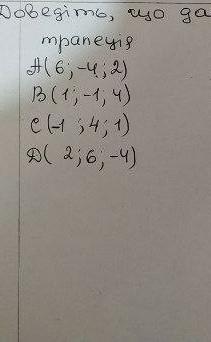 Доведіть, що да
трапеція
A(6; -4; 2)
B(1; -1; 4)
C(-1 ; 4; 1)
D( 2; 6; -4)